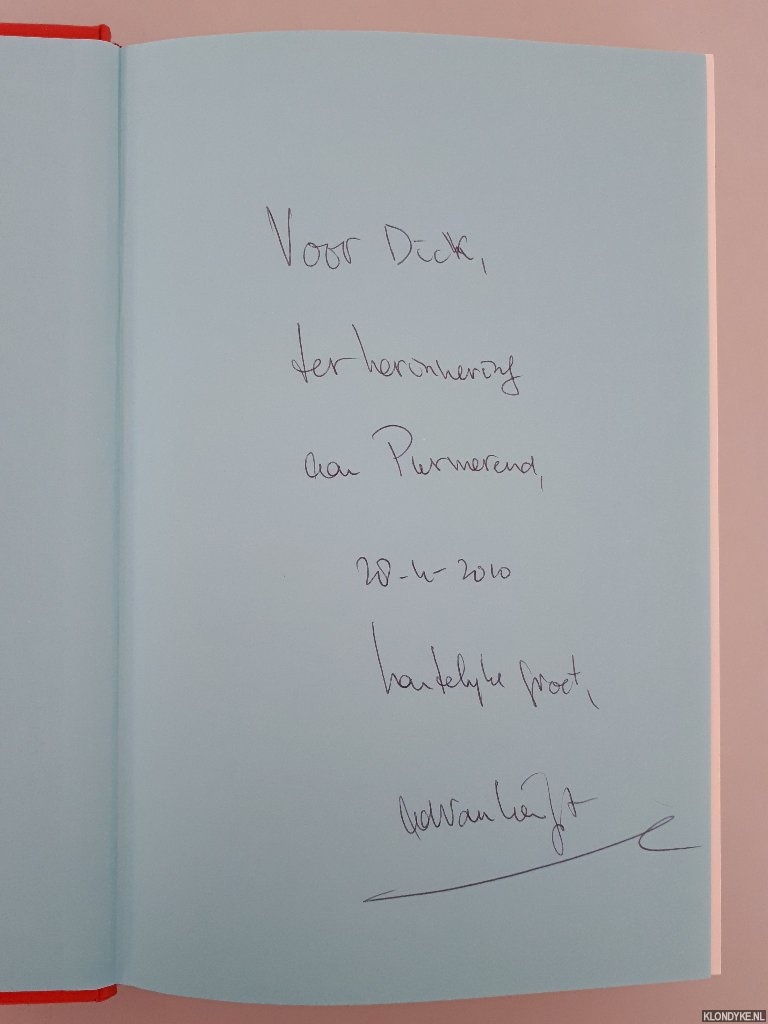 Voor Dick,
ter herinnering
aan Purmerend,
28-4-2010
hartelijke groet,
Ad van Liempt
KLONDYKE.NL